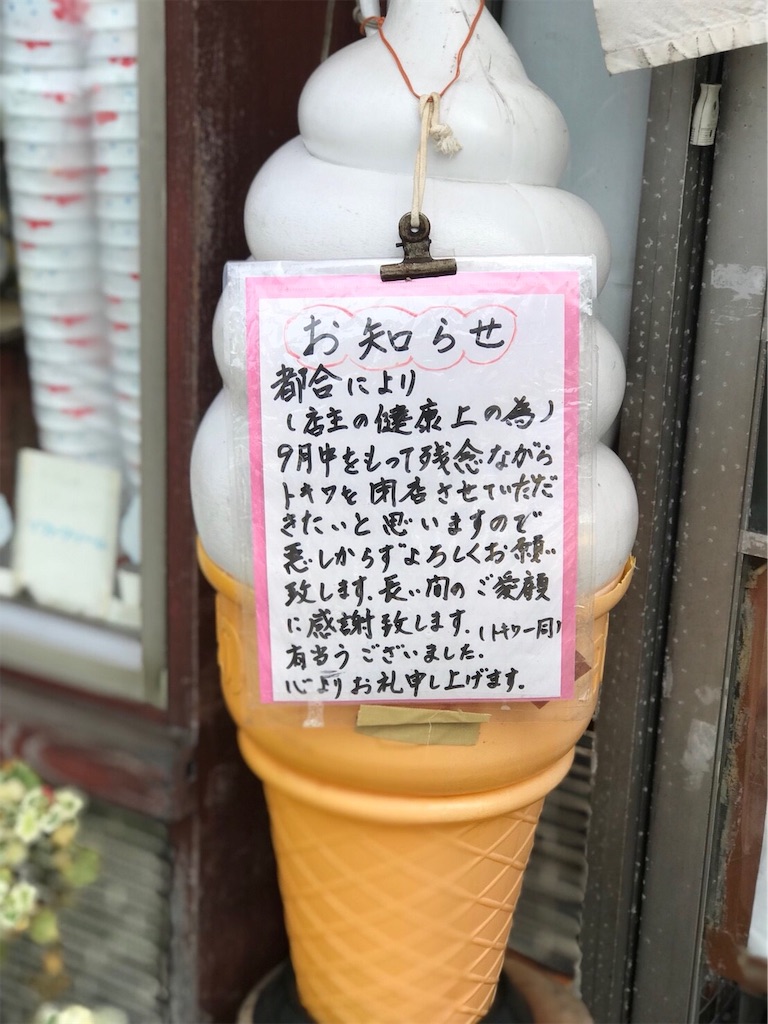 お知らせ
都合により
(店主の健康上の為)
9月中をもって残念ながら
トキワを閉店させていただ
きたいと思いますので
悪しからずよろしくお願い
致します。長い間のご愛顧
に感謝致します。(トキワ一同)
有当うございました。
心よりお礼申し上げます。